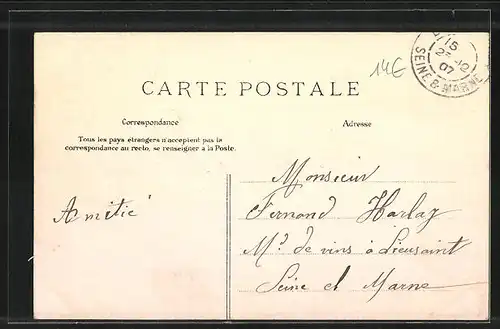 15
25-12
07
SEINE & MARNE
14€
CARTE POSTALE
Correspondance
Adresse
Tous les pays étrangers n'acceptent pas la
correspondance au recto, se renseigner à la Poste.
Amitié
Monsieur
Fernond Harlay
Md de vins à Lieusaint
Seine et Marne